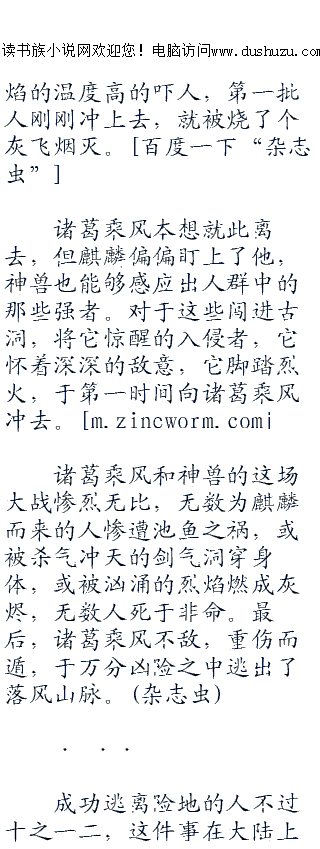 读书族小说网欢迎您！电脑访问www.dushuzu.com
焰的温度高的吓人，第一批
人刚刚冲上去，就被烧了个
灰飞烟灭。[百度一下“杂志
虫”]
诸葛乘风本想就此离
去，但麒麟偏偏盯上了他，
神兽也能够感应出人群中的
那些强者。对于这些闯进古
洞，将它惊醒的入侵者，它
怀着深深的敌意，它脚踏烈
火，于第一时间向诸葛乘风
冲去。[m.zincworm.com]
诸葛乘风和神兽的这场
大战惨烈无比，无数为麒麟
而来的人惨遭池鱼之祸，或
被杀气冲天的剑气洞穿身
体，或被汹涌的烈焰燃成灰
烬，无数人死于非命。最
后，诸葛乘风不敌，重伤而
遁，于万分凶险之中逃出了
落风山脉。(杂志虫)
· · ·
成功逃离险地的人不过
十之一二，这件事在大陆上